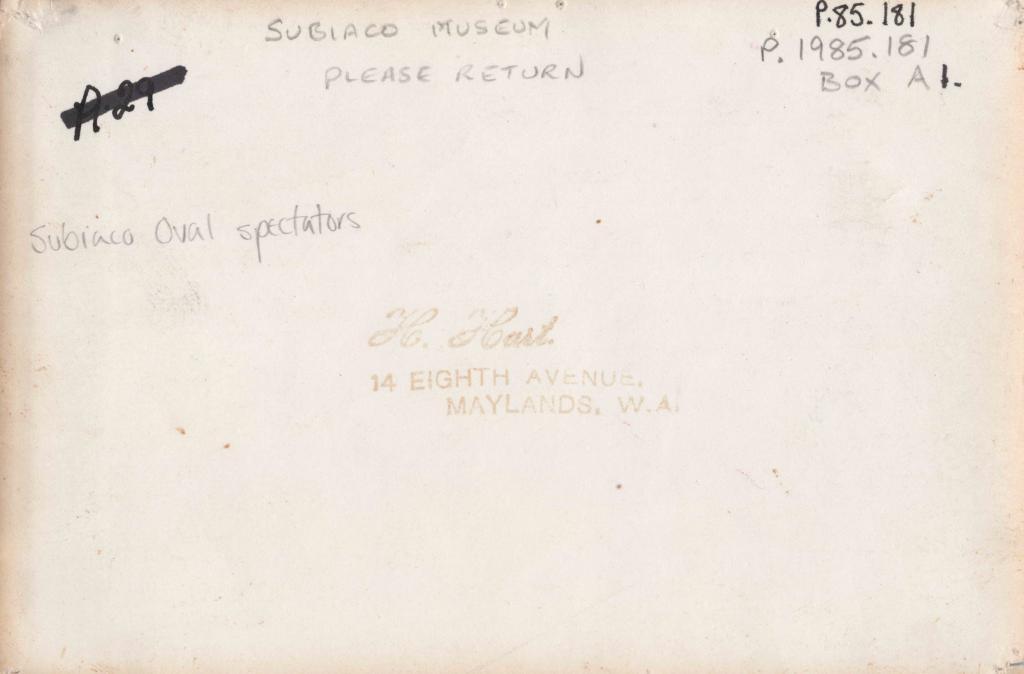 SUBIACO MUSEUM
PLEASE RETURN
P.85.181
P. 1985.181
BOX A1.
A.29
Subiaco Oval spectators
H. Hart.
14 EIGHTH AVENUE,
MAYLANDS, W.A.